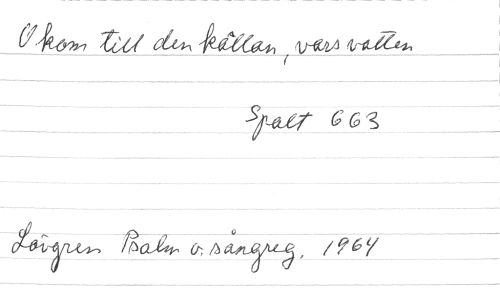 O kom till den källan, vars vatten
Spalt 663
Lövgren Psalm o. sångreg. 1964